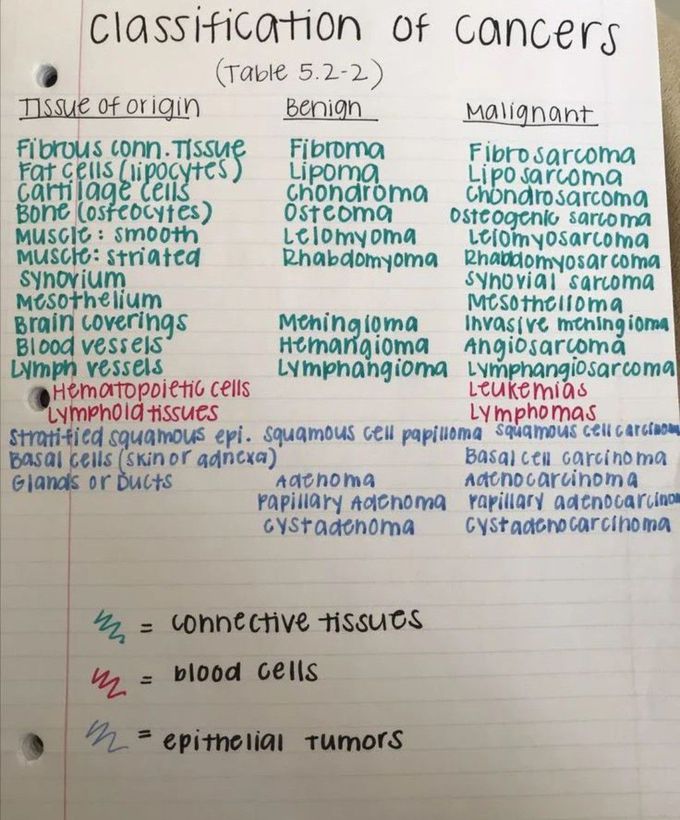 classification of cancers
(Table 5.2-2)
Tissue of origin Benign Malignant
Fibrous conn. Tissue Fibroma Fibrosarcoma
Fat cells (lipocytes) Lipoma Liposarcoma
Cartilage cells Chondroma Chondrosarcoma
Bone (osteocytes) Osteoma Osteogenic sarcoma
Muscle: smooth Leiomyoma Leiomyosarcoma
Muscle: striated Rhabdomyoma Rhabdomyosarcoma
Synovium Synovial sarcoma
Mesothelium Mesothelioma
Brain coverings Meningioma Invasive meningioma
Blood vessels Hemangioma Angiosarcoma
Lymph vessels Lymphangioma Lymphangiosarcoma
Hematopoietic cells Leukemias
Lymphoid tissues Lymphomas
Stratified squamous epi. squamous cell papilloma squamous cell carcinom
Basal cells (skin or adnexa) Basal cell carcinoma
Glands or Ducts Adenoma Adenocarcinoma
Papillary Adenoma Papillary adenocarcino
Cystadenoma Cystadenocarcinoma
= connective tissues
= blood cells
= epithelial tumors